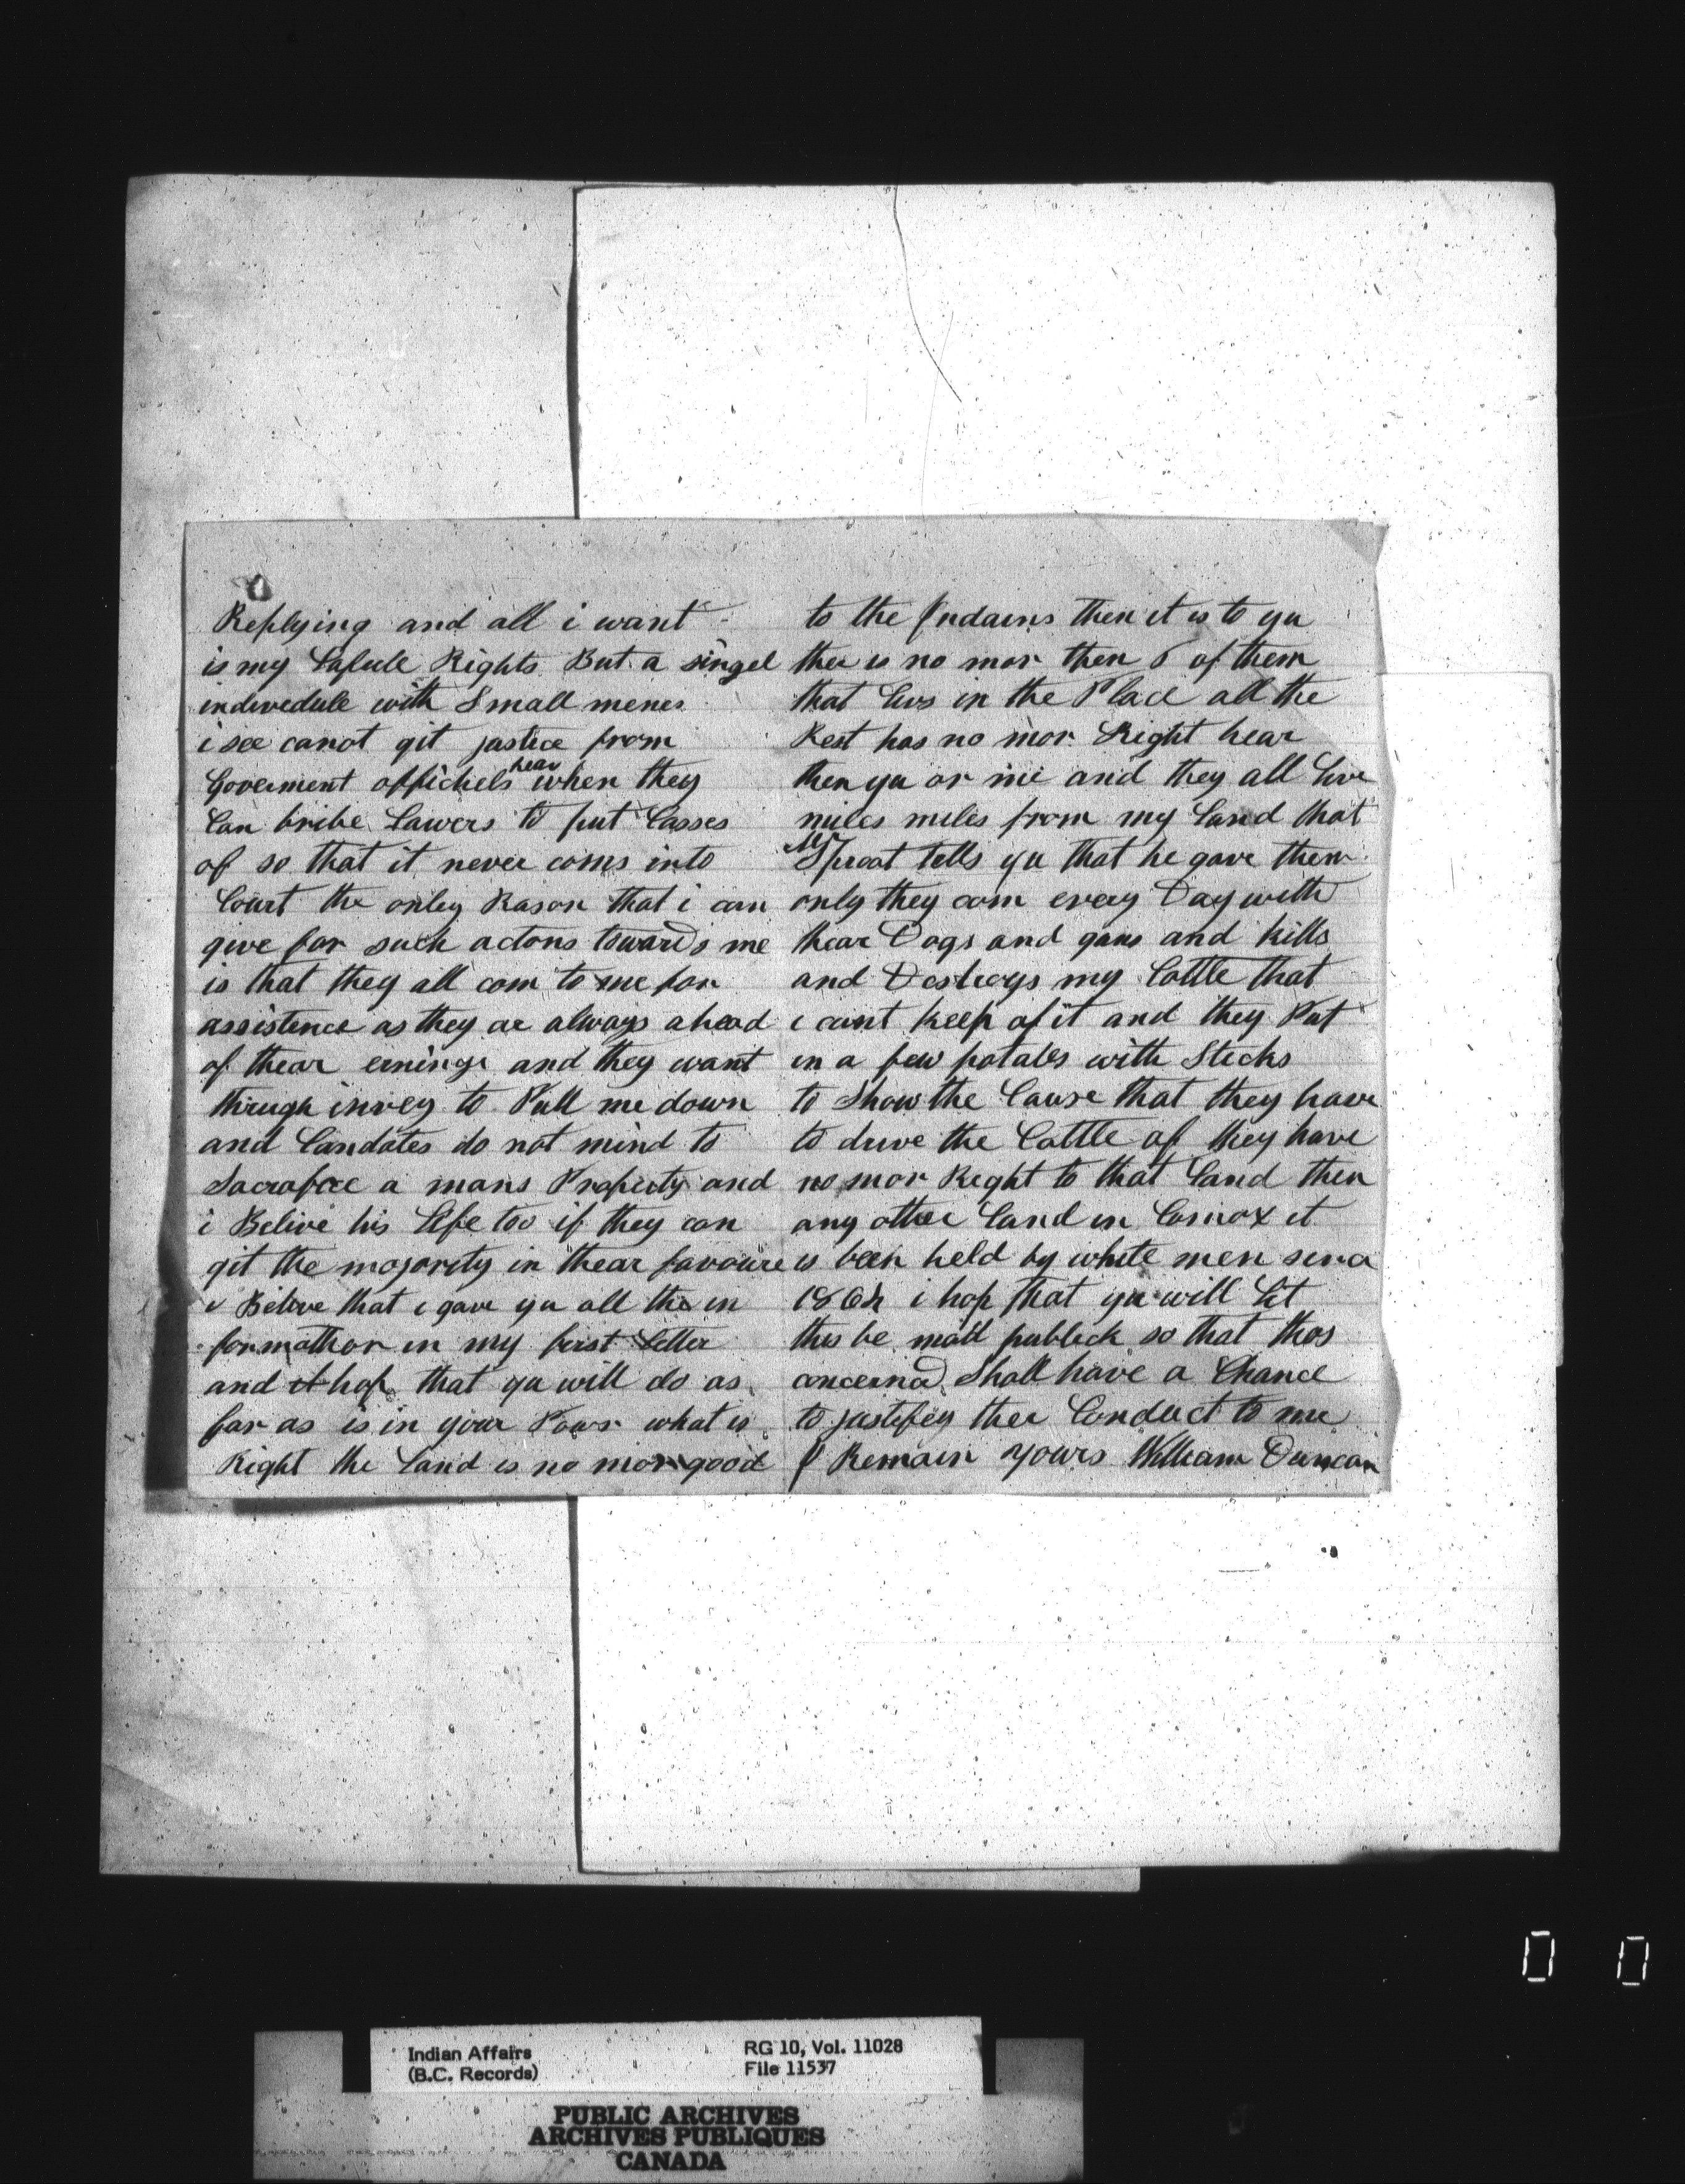 Replying and all i want
is my Lafull Rights But a singel
indevedule with Small menes
i see canot git jastice from
Goverment offichels hear when they
Can bribe Lawers to put Casses
of so that it never coms into
Court the onley Rason that i can
give for such actons towards me
is that they all com to me for
assistence as they ar always ahead
of thear ernings and they want
through invey to Pull me down
and Candates do not mind to
Sacrafice a mans Property and
i Belive his Life too if they can
git the majority in thear favoure
i Belive that i gave yu all the in
formathon in my first Letter
and hop that yu will do as
far as is in your Powr what is
Right the Land is no mor good
to the Indains then it is to yu
ther is no mor then 6 of them
that livs in the Place all the
Rest has no mor Right hear
then yu or me and they all live
miles miles from my Land that
Mr Sproat tells yu that he gave them
only they com every Day with
thear Dogs and guns and kills
and Destroys my Cattle that
i cant keep of it and they Put
in a few potatos with Stecks
to Show the Cause that they have
to drive the Cattle of they have
no mor Right to that Land then
any other Land in Comox it
is been held by white men sence
1862 i hop that yu will Let
this be mad publick so that thos
concernd Shall have a Chance
to justifey ther Conduct to me
I Remain yours William Duncan
Indian Affairs
(B.C. Records)
RG 10, Vol. 11028
File 11537
PUBLIC ARCHIVES
ARCHIVES PUBLIQUES
CANADA
0 0